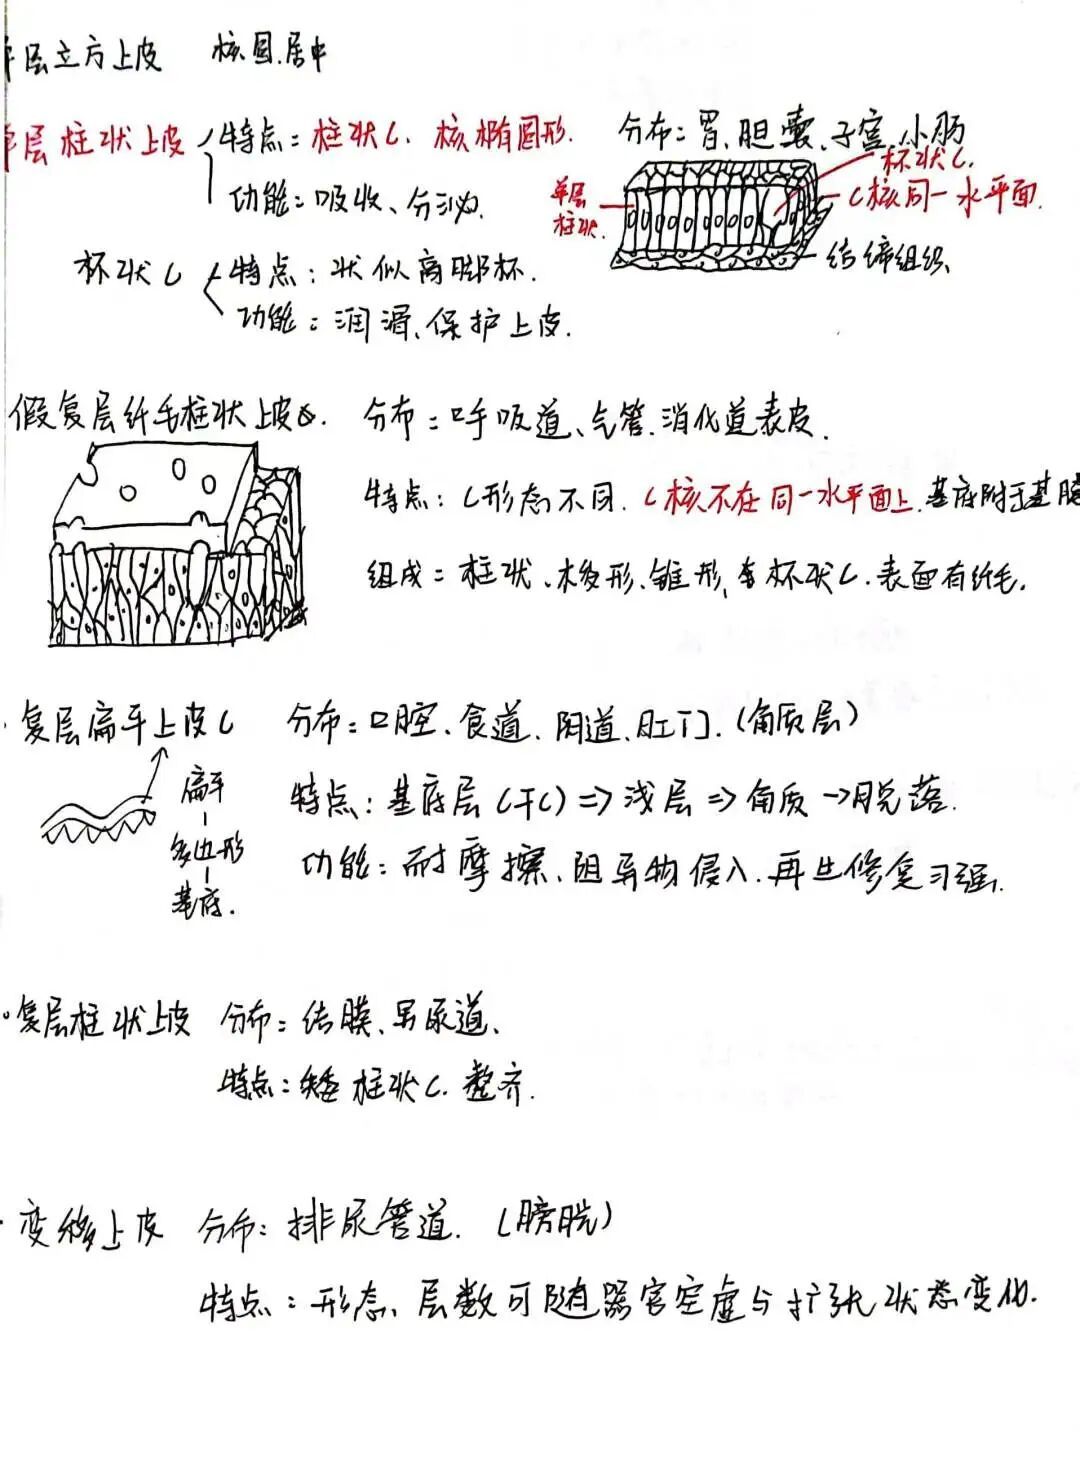 单层立方上皮 核圆.居中
单层柱状上皮 特点：柱状C. 核椭圆形. 分布：胃、胆囊、子宫.小肠
功能：吸收、分泌.
单层柱状.
杯状C.
C核同一水平面.
结缔组织.
杯状C 特点：状似高脚杯.
功能：润滑、保护上皮.
假复层纤毛柱状上皮 分布：呼吸道、气管.消化道表皮.
特点：C形态不同. C核不在同一水平面上.基底附于基膜
组成：柱状、梭形、锥形, 杯状C.表面有纤毛.
复层扁平上皮C 分布：口腔、食道、阴道、肛门.(角质层)
扁平
多边形
基底.
特点：基底层(干C)⇒浅层⇒角质→脱落.
功能：耐摩擦、阻异物侵入.再生修复力强.
复层柱状上皮 分布：结膜、男尿道、
特点：矮柱状C.整齐.
变移上皮 分布：排尿管道.(膀胱)
特点：形态、层数可随器官空虚与扩张状态变化.